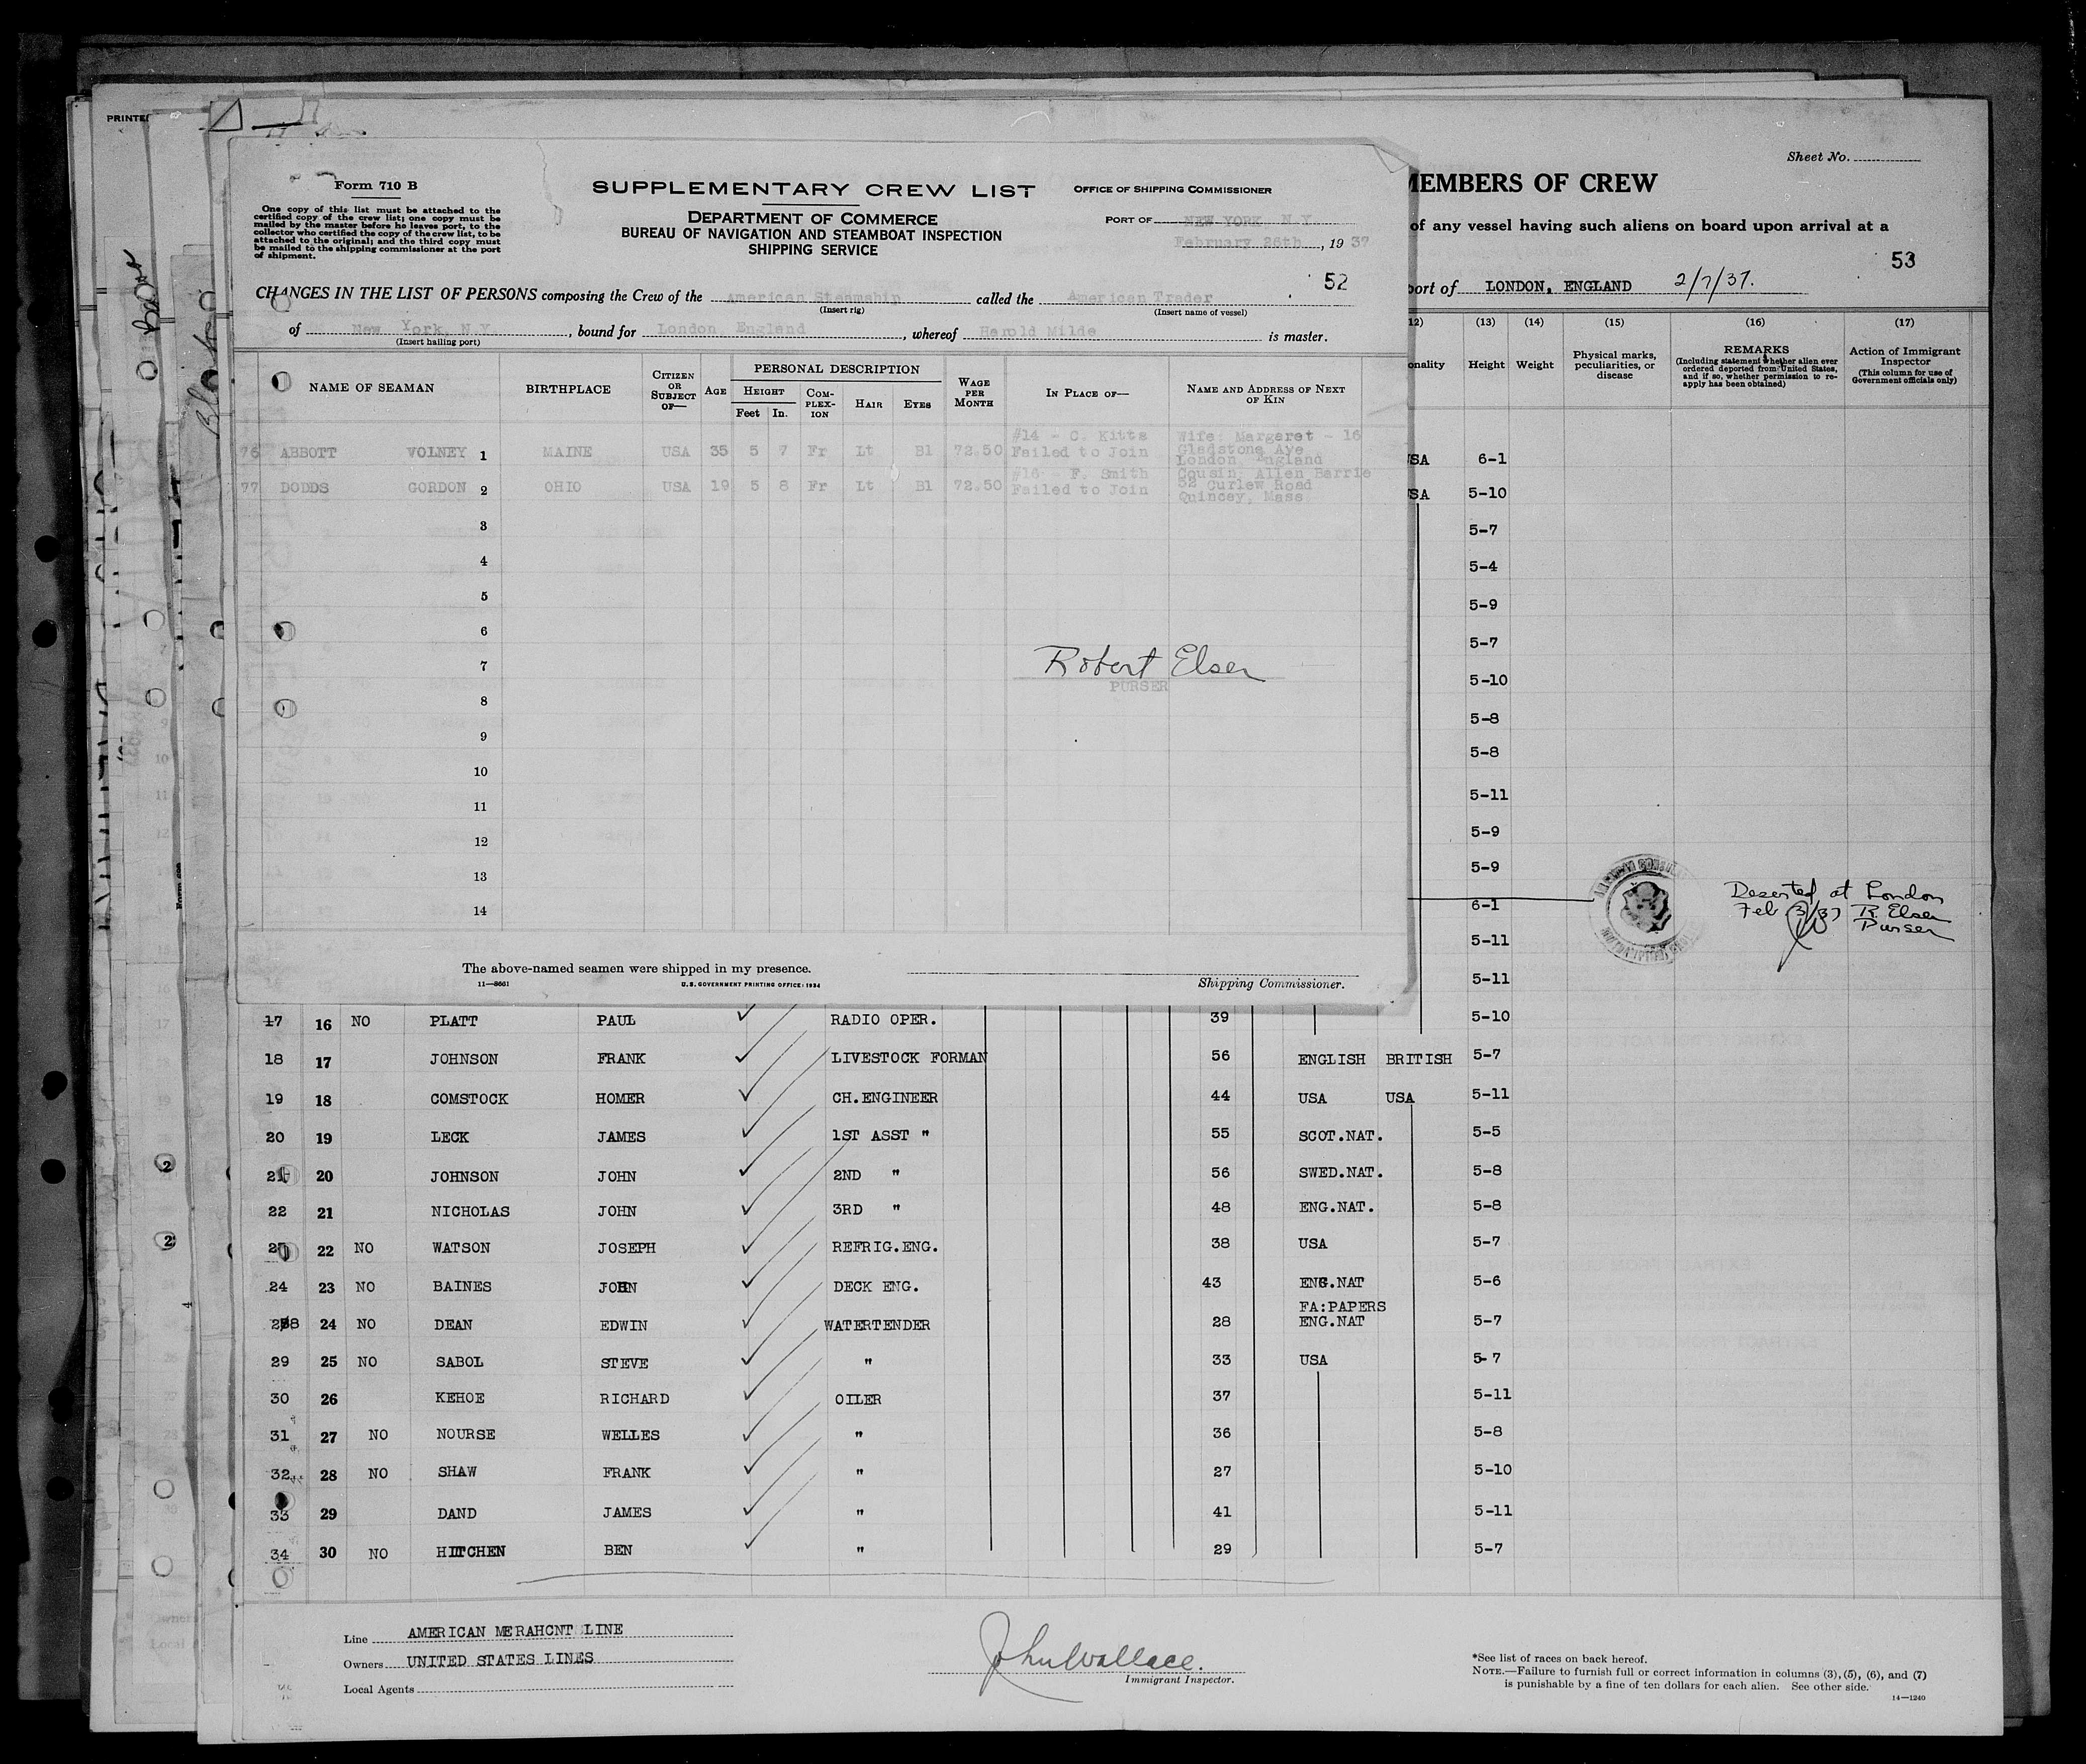 PRINTE
Sheet No.
Form 710 B
One copy of this list must be attached to the
certified copy of the crew list; one copy must be
mailed by the master before he leaves port, to the
collector who certified the copy of the crew list, to be
attached to the original; and the third copy must
be mailed to the shipping commissioner at the port
of shipment.
SUPPLEMENTARY CREW LIST
DEPARTMENT OF COMMERCE
BUREAU OF NAVIGATION AND STEAMBOAT INSPECTION
SHIPPING SERVICE
OFFICE OF SHIPPING COMMISSIONER
PORT OF NEW YORK N.Y.
February 26th, 1937
52
CHANGES IN THE LIST OF PERSONS composing the Crew of the American Steamship called the American Trader
(Insert rig) (Insert name of vessel)
of New York, N.Y., bound for London England, whereof Harold Milde is master.
(Insert hailing port)
NAME OF SEAMAN BIRTHPLACE CITIZEN OR SUBJECT OF— AGE PERSONAL DESCRIPTION HEIGHT Feet In. COMPLEXION HAIR EYES WAGE PER MONTH IN PLACE OF— NAME AND ADDRESS OF NEXT OF KIN
76 ABBOTT VOLNEY 1 MAINE USA 35 5 7 Fr Lt Bl 72.50 #14 - C. Kitts Failed to Join Wife: Margaret - 16 Gladstone Ave London, England
77 DODDS GORDON 2 OHIO USA 19 5 8 Fr Lt Bl 72.50 #16 F. Smith Failed to Join Cousin: Allen Barrie 32 Curlew Road Quincey, Mass
3
4
5
6
7
8
9
10
11
12
13
14
Robert Elser
PURSER
The above-named seamen were shipped in my presence.
11—8661 U.S. GOVERNMENT PRINTING OFFICE: 1934
Shipping Commissioner.
MEMBERS OF CREW
of any vessel having such aliens on board upon arrival at a
53
port of LONDON, ENGLAND 2/7/37.
12) (13) (14) (15) (16) (17)
onality Height Weight Physical marks, peculiarities, or disease
REMARKS
(Including statement whether alien ever
ordered deported from United States,
and if so, whether permission to re-
apply has been obtained)
Action of Immigrant
Inspector
(This column for use of
Government officials only)
SA 6-1
SA 5-10
5-7
5-4
5-9
5-7
5-10
5-8
5-8
5-11
5-9
5-9
6-1
5-11
5-11
Deserted at London
Feb 3/37 R. Elser
Purser
17 16 NO PLATT PAUL RADIO OPER. 39 5-10
18 17 JOHNSON FRANK LIVESTOCK FORMAN 56 ENGLISH BRITISH 5-7
19 18 COMSTOCK HOMER CH.ENGINEER 44 USA USA 5-11
20 19 LECK JAMES 1ST ASST " 55 SCOT.NAT. 5-5
21 20 JOHNSON JOHN 2ND " 56 SWED.NAT. 5-8
22 21 NICHOLAS JOHN 3RD " 48 ENG.NAT. 5-8
22 NO WATSON JOSEPH REFRIG.ENG. 38 USA 5-7
24 23 NO BAINES JOHN DECK ENG. 43 ENG.NAT 5-6
FA:PAPERS
28 24 NO DEAN EDWIN WATERTENDER 28 ENG.NAT 5-7
29 25 NO SABOL STEVE " 33 USA 5-7
30 26 KEHOE RICHARD OILER 37 5-11
31 27 NO NOURSE WELLES " 36 5-8
32 28 NO SHAW FRANK " 27 5-10
33 29 DAND JAMES " 41 5-11
34 30 NO HITCHEN BEN " 29 5-7
Line AMERICAN MERAHCNT LINE
Owners UNITED STATES LINES
Local Agents
John Wallace.
Immigrant Inspector.
*See list of races on back hereof.
NOTE.—Failure to furnish full or correct information in columns (3), (5), (6), and (7)
is punishable by a fine of ten dollars for each alien. See other side.
14—1240